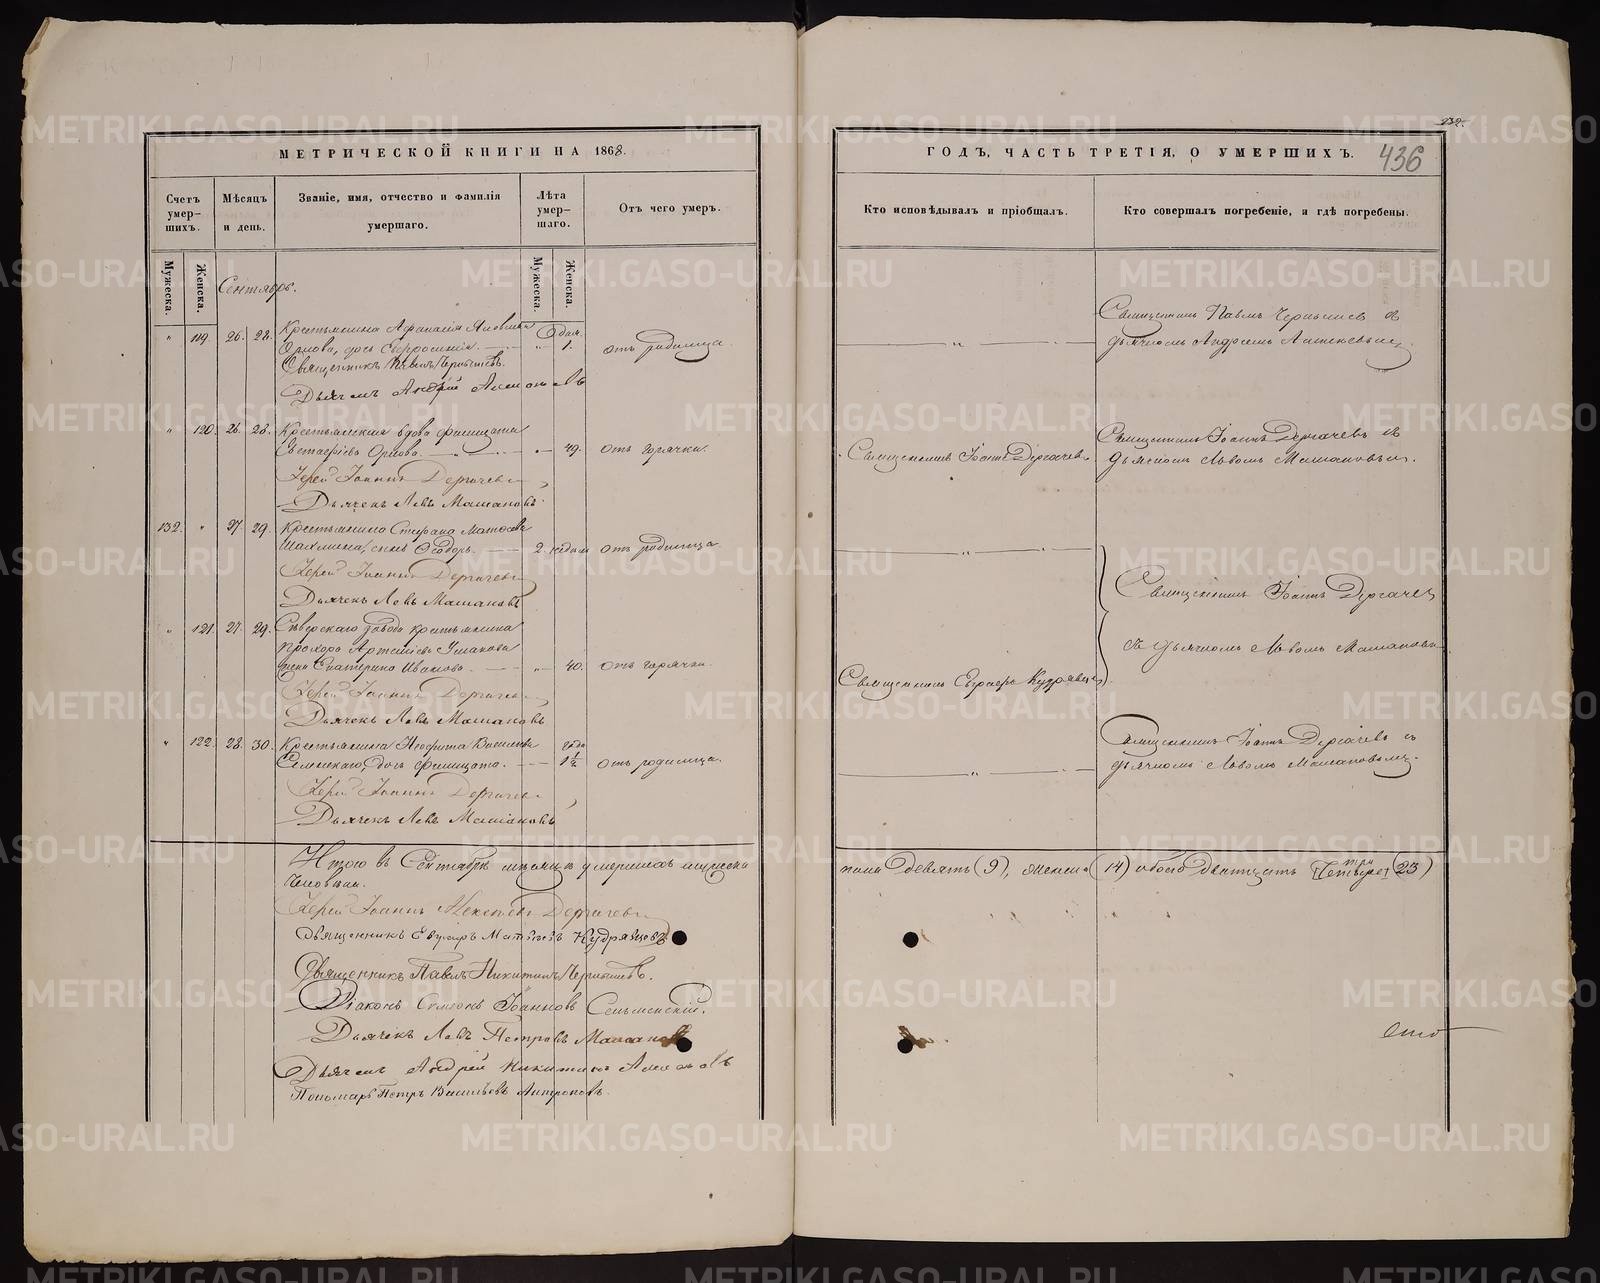 МЕТРИЧЕСКОЙ КНИГИ НА 1868.
Счетъ умер- шихъ.
Мѣсяцъ и день.
Званіе, имя, отчество и фамилія умершаго.
Лѣта умер- шаго.
Отъ чего умеръ.
Мужеска.
Женска.
Мужеска.
Женска.
Сентябрь.
" 119. 26. 28. Крестьянина Афанасія Яковлева Один.
Орлова, дочь Евфросинія. " 1. отъ родимца.
Священникъ Павелъ Чернышевъ.
Дьячекъ Андрей
" 120. 26. 28. Крестьянская вдова Филицата
Евстафіева Орлова. " 49. отъ горячки.
Іерей Іоаннъ Дергачевъ
Дьячекъ Левъ Машановъ.
132. " 27. 29. Крестьянина Стефана Матвѣева
сынъ Ѳеодоръ. 2. недѣли отъ родимца.
Іерей Іоаннъ Дергачевъ
Дьячекъ Левъ Машановъ
" 121. 27. 29. Сѣверскаго завода крестьянина
Прохора Артеміева Ушакова
жена Екатерина Иванова. " 40. отъ горячки.
Іерей Іоаннъ Дергачевъ
Дьячекъ Левъ Машановъ
" 122. 28. 30. Крестьянина Неофита Васильева года
дочь Филицата. 1½ отъ родимца.
Іерей Іоаннъ Дергачевъ
Дьячекъ Левъ Машановъ
Итого въ Сентябрѣ мѣсяцѣ умершихъ мужеска
Іерей Іоаннъ Алексѣевъ Дергачевъ
Священникъ Евграфъ Матвѣевъ Кудрявцовъ
Священникъ Павелъ Никитинъ Чернышевъ.
Діаконъ Симеонъ Іоанновъ
Дьячекъ Левъ Петровъ Машановъ
Дьячекъ Андрей Никитинъ
Пономарь Петръ Васильевъ Антроповъ.
132.
ГОДЪ, ЧАСТЬ ТРЕТІЯ, О УМЕРШИХЪ. 436
Кто исповѣдывалъ и пріобщалъ.
Кто совершалъ погребеніе, и гдѣ погребены.
Священникъ Павелъ Чернышевъ съ
" дьячкомъ Андреемъ
Священникъ Іоаннъ Дергачевъ съ
Священникъ Іоаннъ Дергачевъ. дьячкомъ Львомъ Машановымъ.
"
Священникъ Іоаннъ Дергачевъ
съ дьячкомъ Львомъ Машановымъ
Священникъ Евграфъ Кудрявцовъ.
Священникъ Іоаннъ Дергачевъ съ
" дьячкомъ Львомъ Машановымъ.
пола девять (9), женска (14) обоего двадцать три [четыре] (23)
METRIKI.GASO-URAL.RU